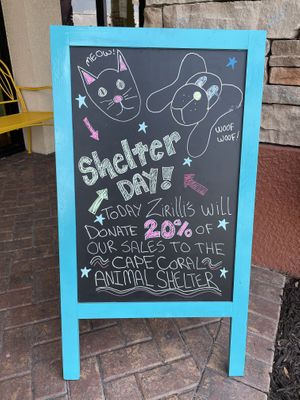 MEOW!
WOOF
WOOF!
Shelter
DAY!
TODAY ZIRILLI'S WILL
DONATE 20% OF
OUR SALES TO THE
~ CAPE CORAL ~
ANIMAL SHELTER